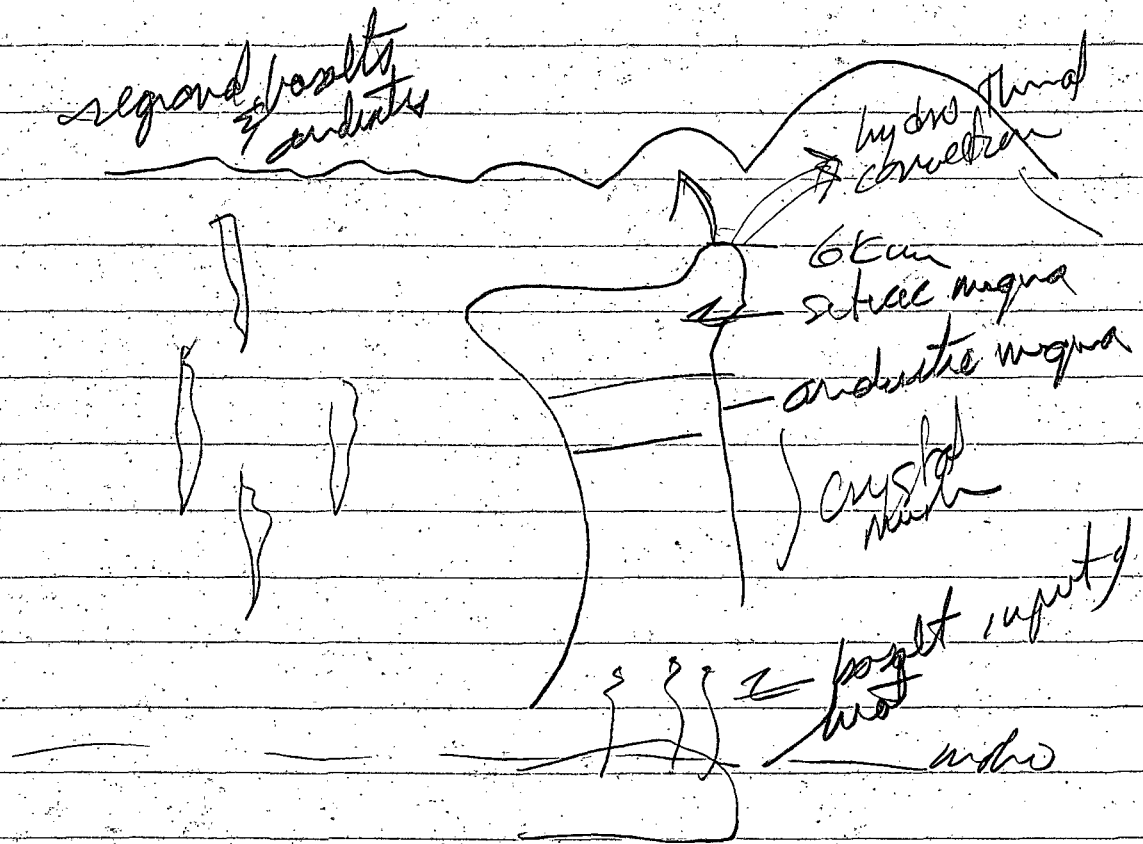 regional basalts
& andesites
hydrothermal
convection
6km
silicic magma
andesitic magma
crystal
mush
basalt input
heat
moho